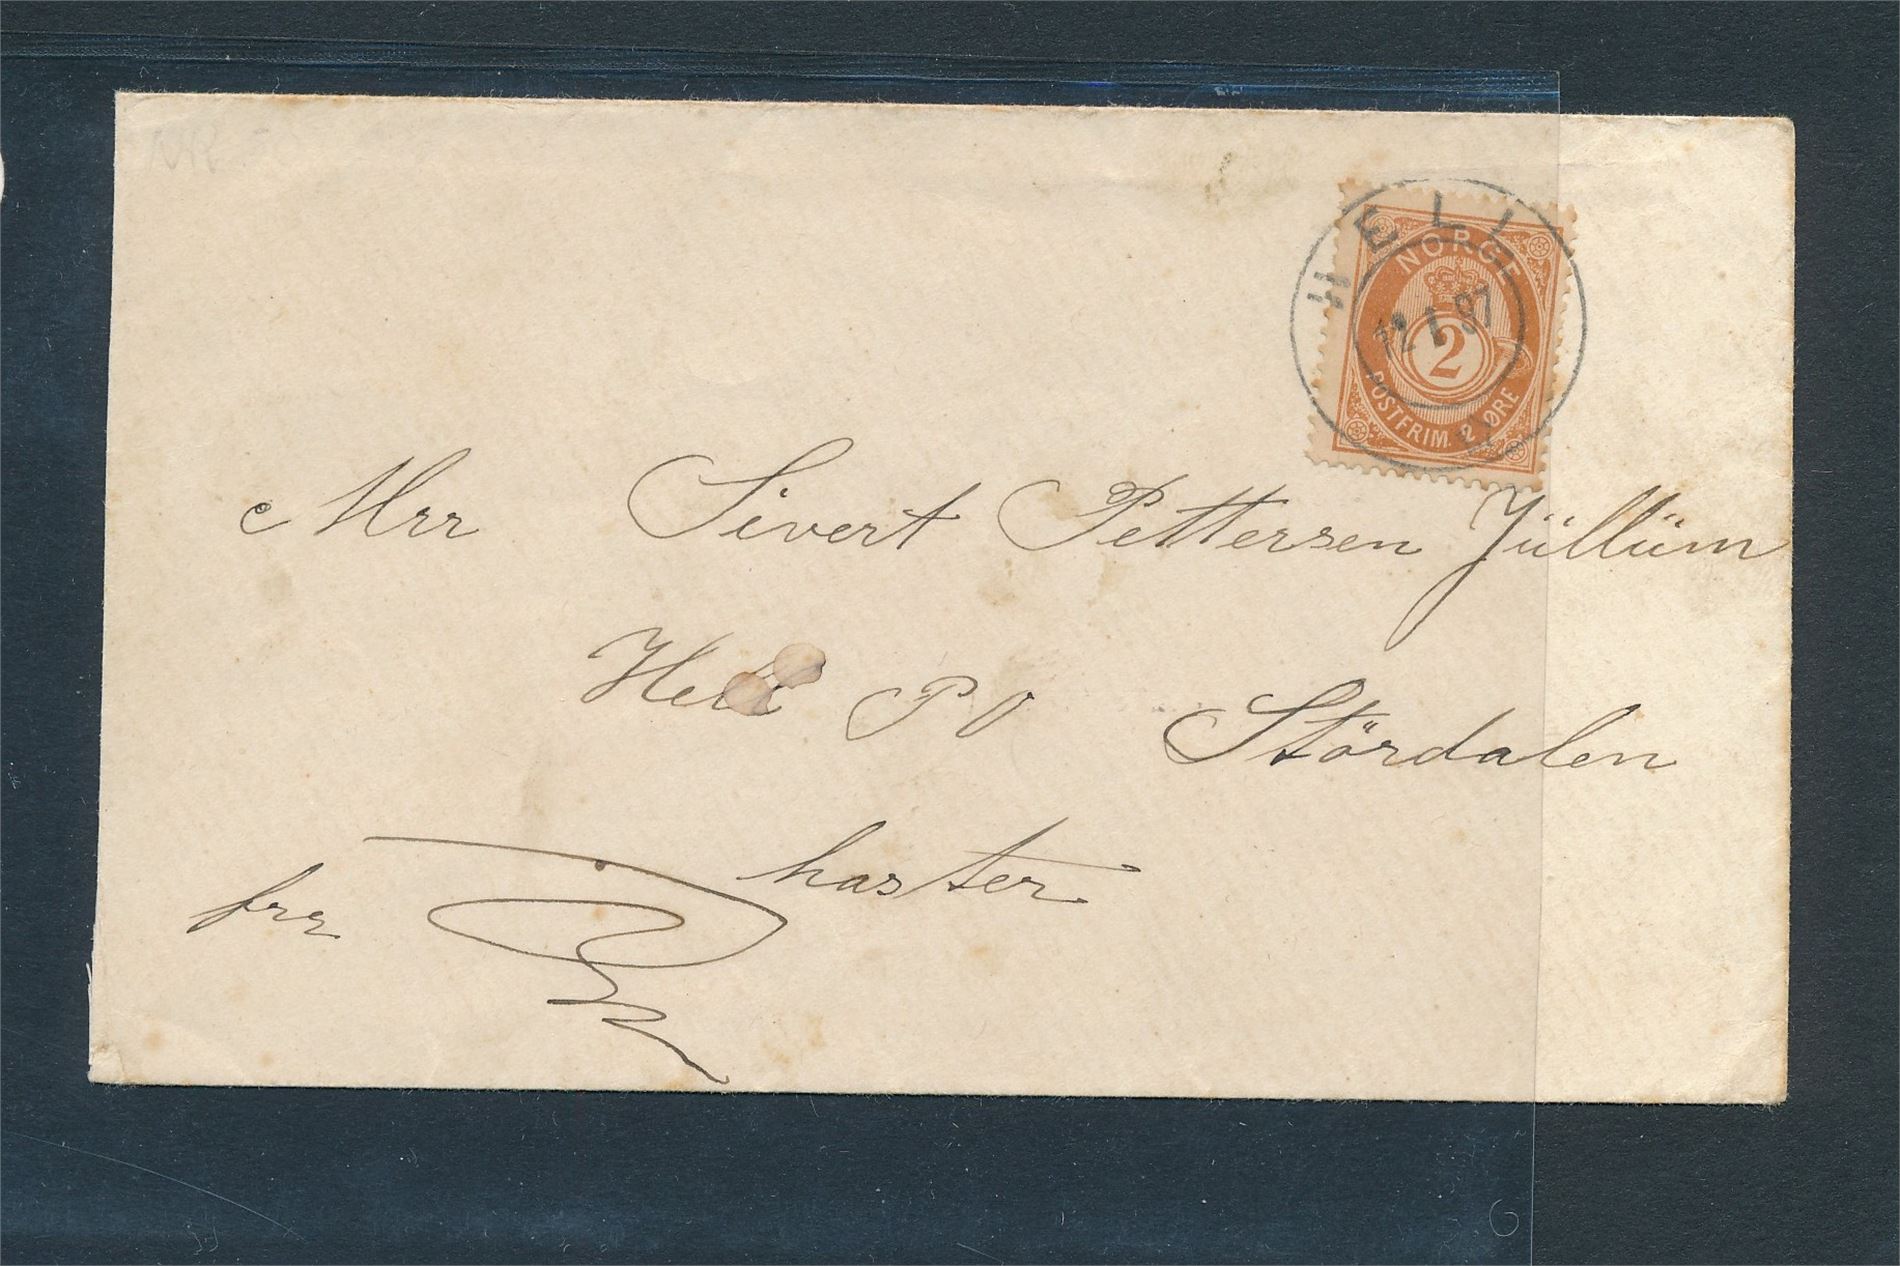 HELL
NORGE
12 I 97
2
POSTFRIM. 2 ØRE
Mrr Sivert Pettersen Jüllüm
Hell PO Stördalen
haster
frr
6